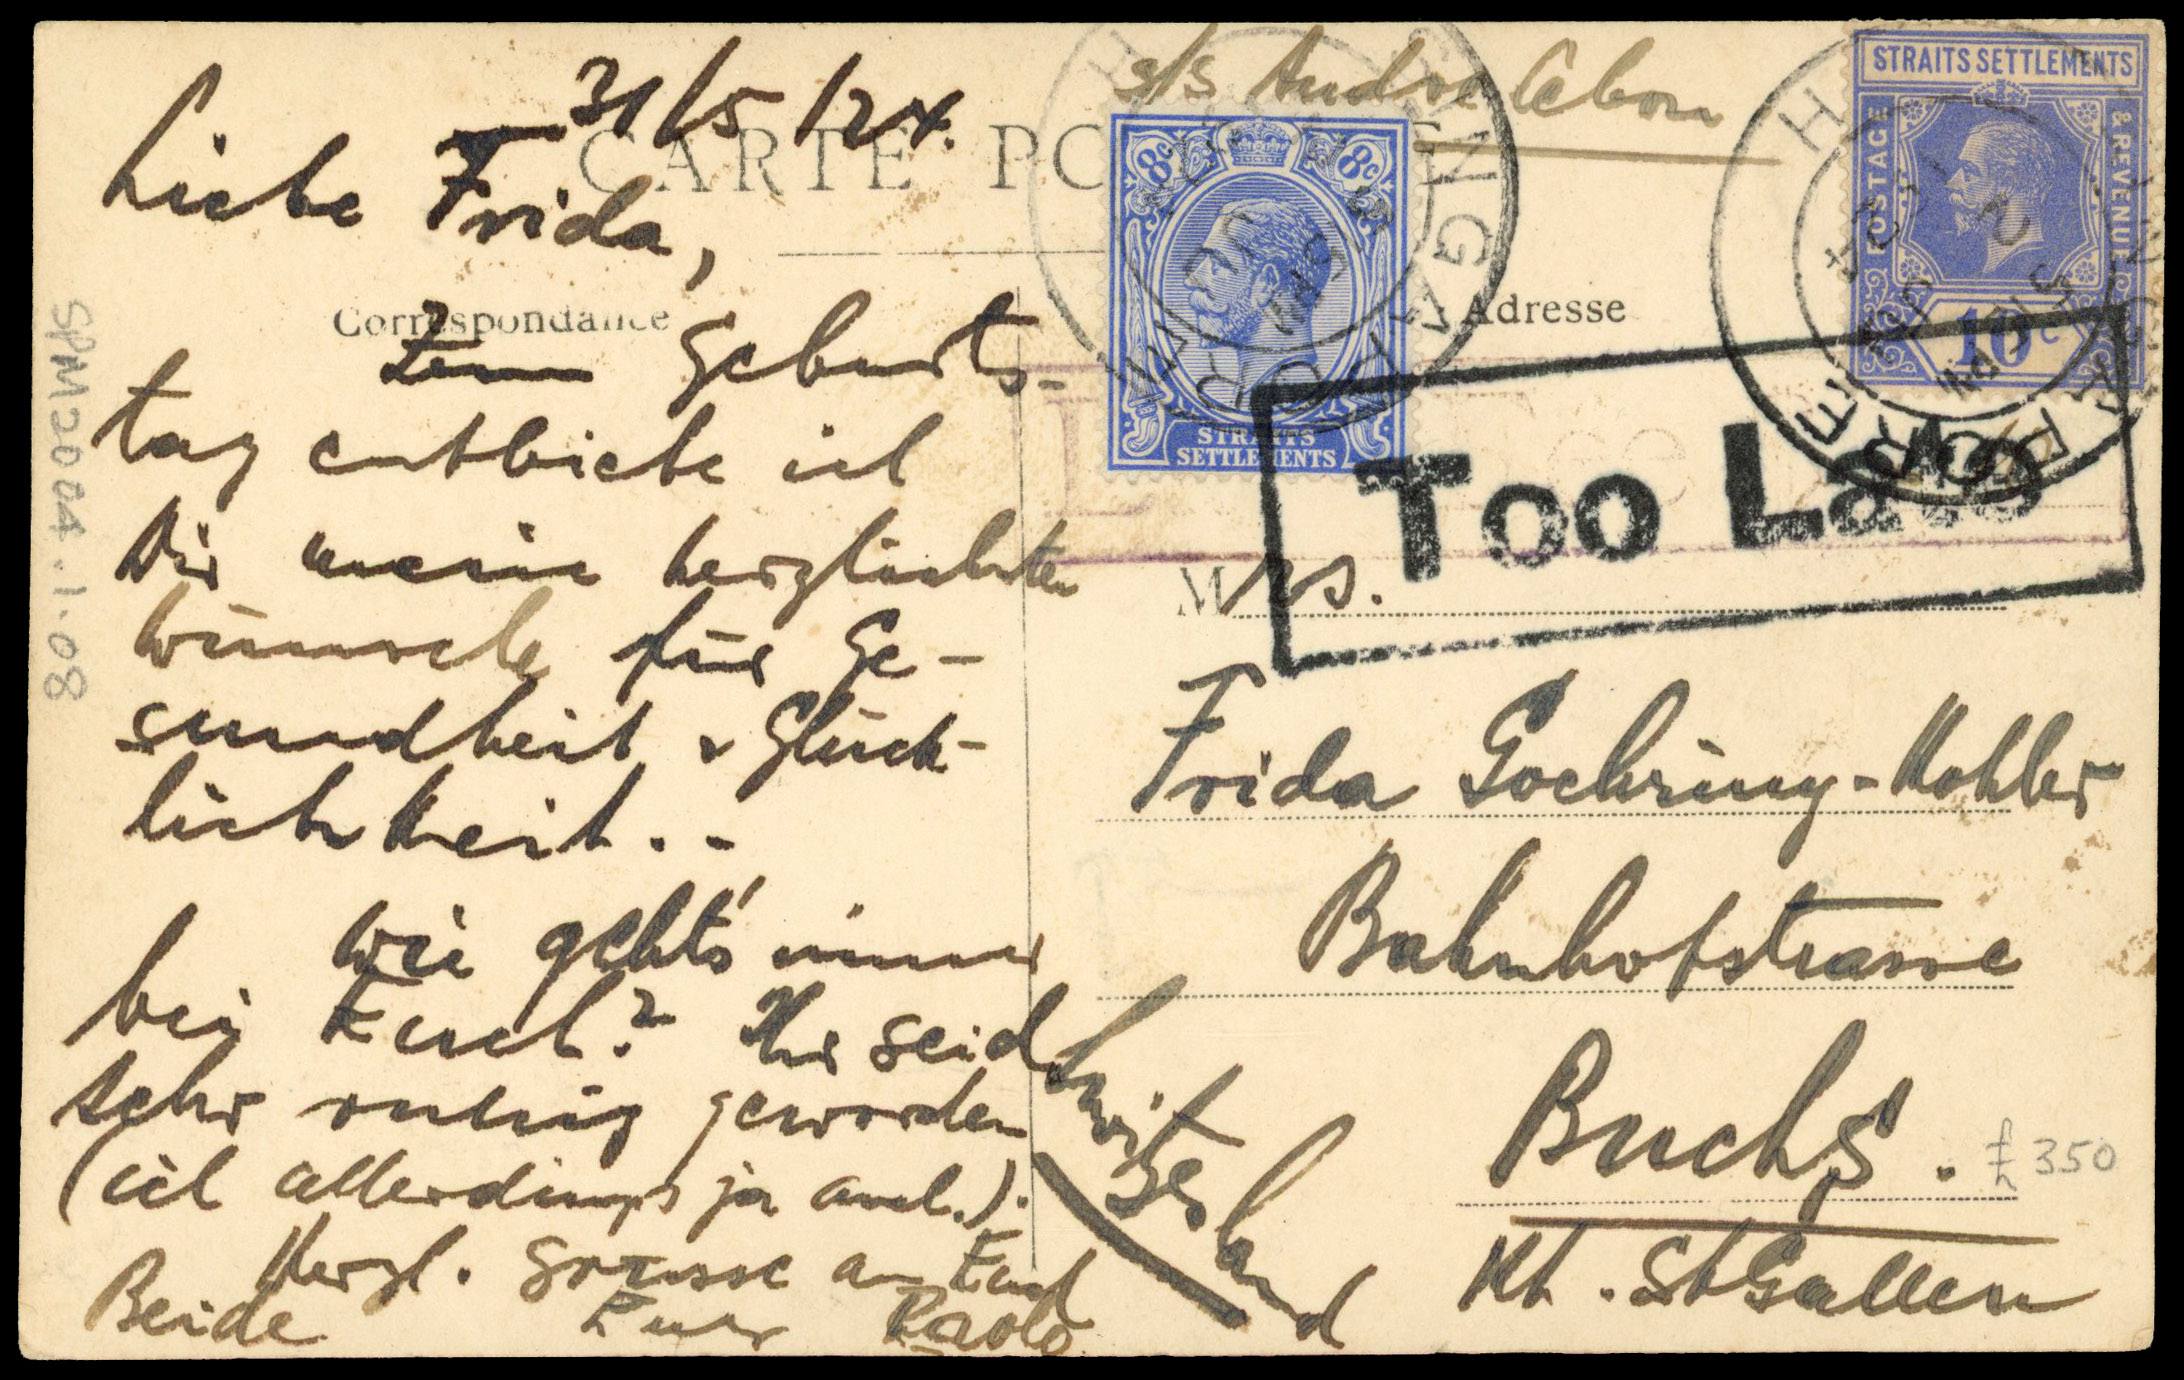 31/5/24.
Liebe Frida,
Zum Geburts-
tag entbiete ich
Dir meine herzlichsten
Wünsche für Ge-
sundheit & Glück-
lichkeit. . -
Wie geht's immer
bei Euch? Ihr seid
sehr ruhig geworden
(ich allerdings ja auch.).
Herzl. Grüsse an Euch
Beide Euer
CARTE PO
Correspondance
Adresse
s/s Andre Lebon
8c 8c
STRAITS
SETTLEMENTS
STRAITS SETTLEMENTS
POSTAGE
& REVENUE
10c
SINGAPORE
PM
SINGAPORE
PM
Too Late
Mrs.
Frida Goehring-Kohler
Bahnhofstrasse
Buchs.
Kt. St Gallen
Switserland
£350
SPM2004.1.08